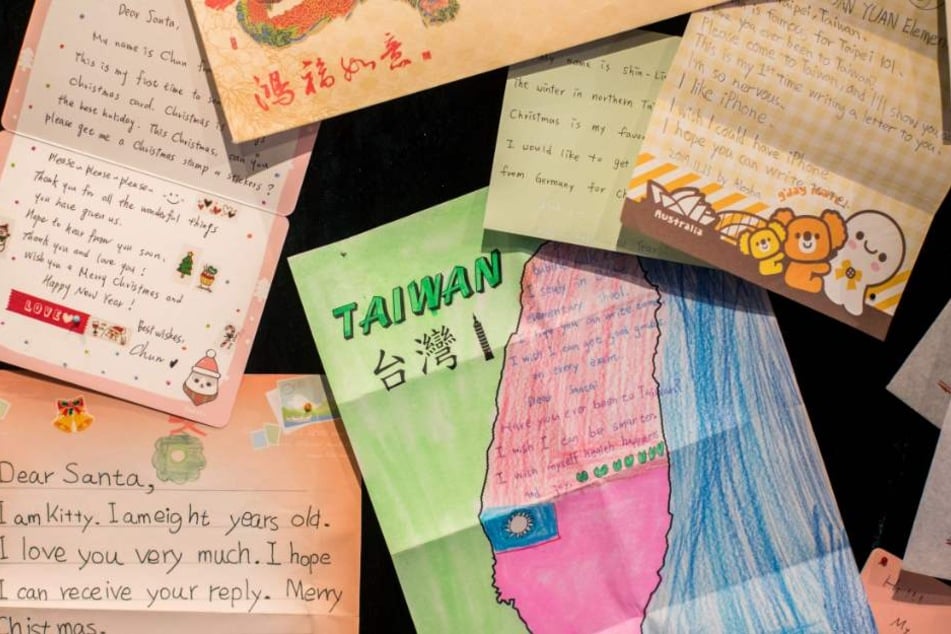 Dear Santa,
My name is Chun
This is my first time to
Christmas card. Christmas is
the best holiday. This Christmas, can you
please get me a Christmas stamp & stickers?
Please~Please~please~
Thank you for all the wonderful things
you have given us.
Hope to hear from you soon.
Thank you and love you!
Wish you a Merry Christmas and
Happy New Year!
LOVE
Best wishes,
Chun
鴻福如意
name is Shin-Li
The winter in northern Tai
Christmas is my favor
I would like to get
from Germany for Ch
YUAN Elemen
Taipei, Taiwan.
is famous for Taipei 101.
you ever been to Taiwan?
Please come to Taiwan and I'll show you
This is my 1st time writing a letter to you.
I'm so nervous.
I like iPhone.
I wish I could have iPhone
I hope you can write
g'day mate!
Australia
TAIWAN
台灣
I study in
elementary school.
you can write
I wish I can get good grade
on every exam.
Dear Santa
Have you ever been to Taiwan?
I wish I can be smarter.
I wish myself health, happiness
and joy.
Dear Santa,
I am Kitty. I am eight years old.
I love you very much. I hope
I can receive your reply. Merry
Christmas.